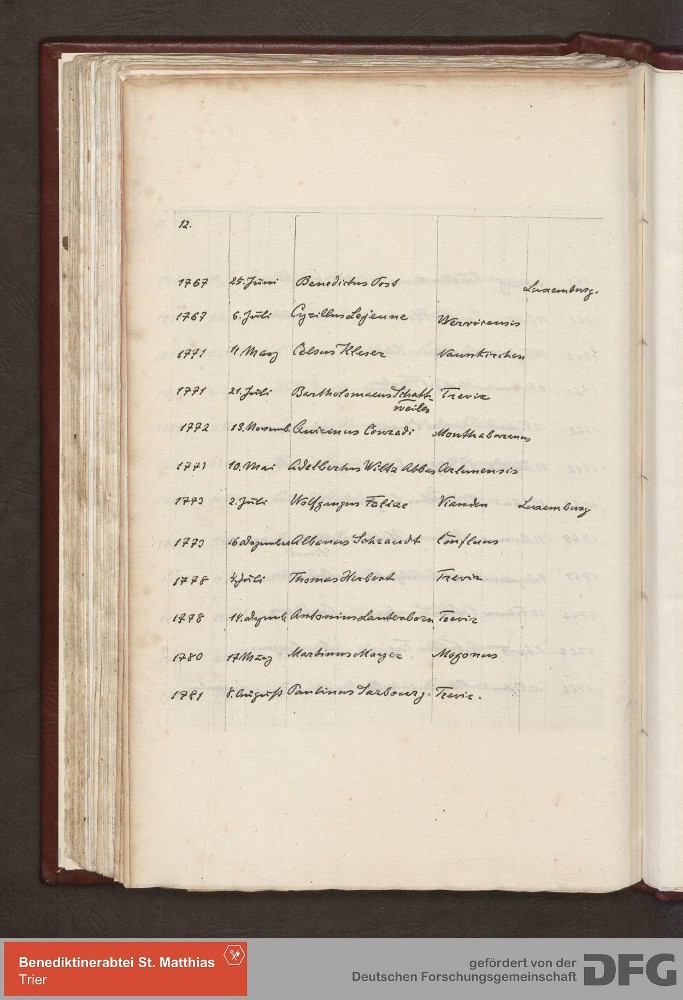 12.
1767 25. Juni Benedictus Post Luxemburg.
1767 6. Juli Cyrillus Lejeune Wervicensis
1771 11 März Celsus Kleser Naunkirchen
1771 21. Juli Bartholomaeus Schatt- Trevir
weiler
1772 18. Novemb. Quiricus Conradi Monthabaurinus
1773 10. Mai Adelbertus Wiltz Abbas Arlunensis
1773 2. Juli Wolfgangus Foliae Vianden Luxemburg
1773 Albanus Schraudt Confluns
1778 4. Juli Thomas Herbert Trevir
1778 14. Antonius Lauterborn Trevir
1780 17 März Martinus Mayer Mogonus
1781 8. August Paulinus Sarbourg. Trevir.
Benediktinerabtei St. Matthias
Trier
gefördert von der
Deutschen Forschungsgemeinschaft DFG